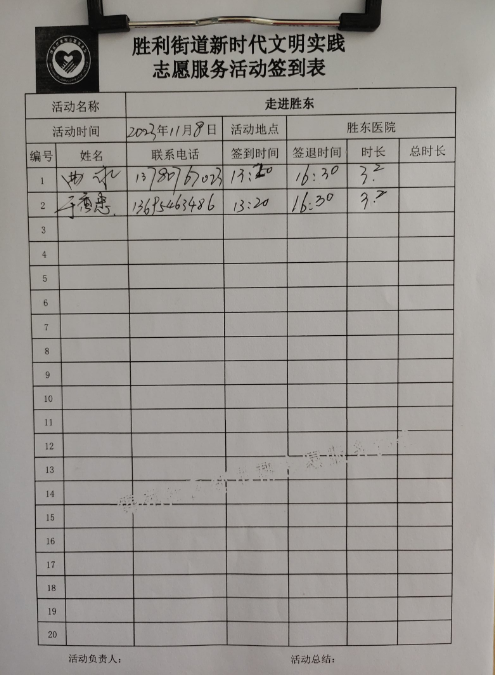 胜利街道新时代文明实践
志愿服务活动签到表
活动名称 走进胜东
活动时间 2023年11月8日 活动地点 胜东医院
编号 姓名 联系电话 签到时间 签退时间 时长 总时长
1 13:20 16:30 3.2
2 13695463486 13:20 16:30 3.2
3
4
5
6
7
8
9
10
11
12
13
14
15
16
17
18
19
20
活动负责人： 活动总结：